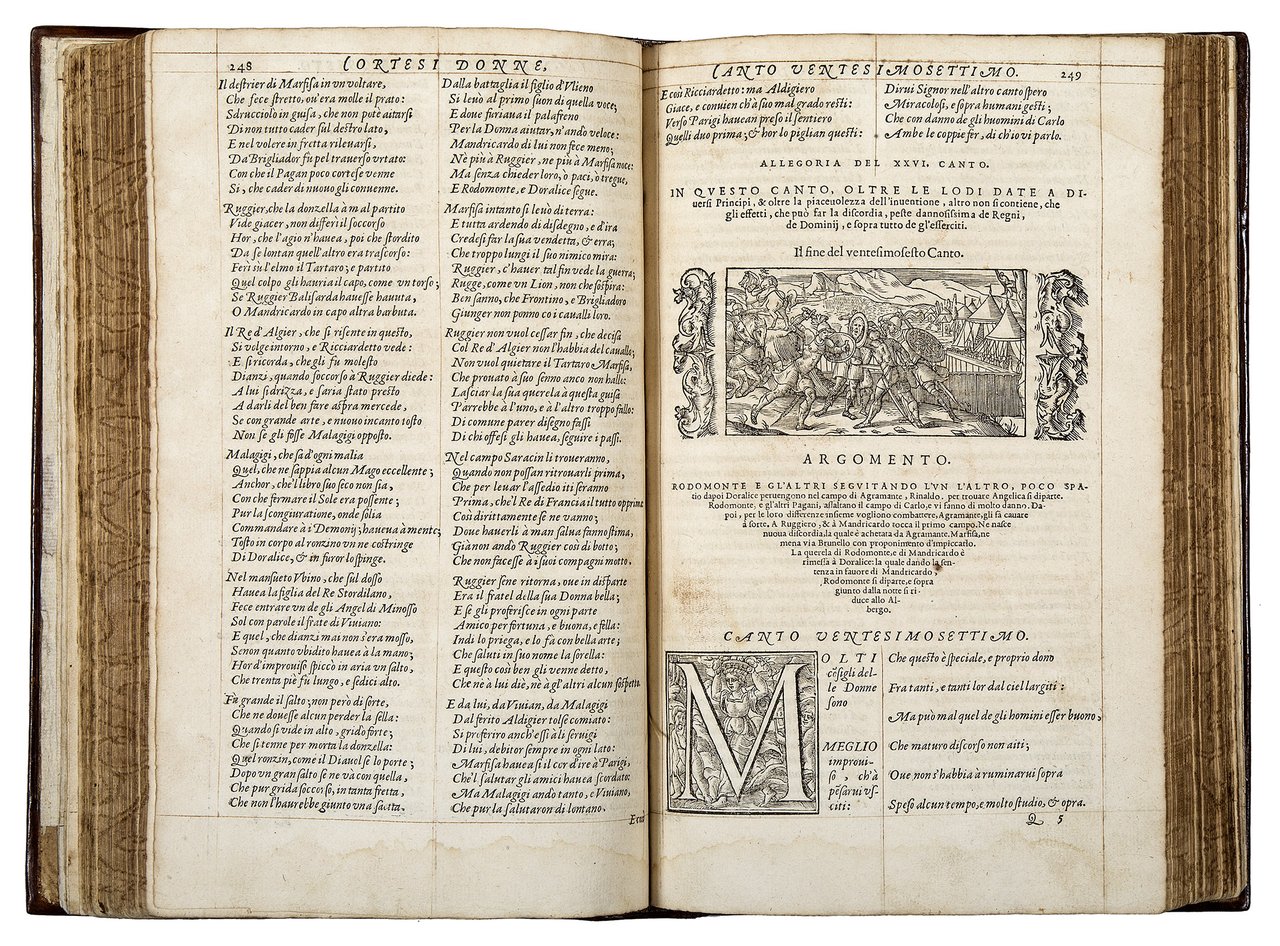 248
CORTESI DONNE,
Il destrier di Marfisa in vn voltare,
Che fece stretto, ou'era molle il prato:
Sdrucciolò in guisa, che non potè aitarsi
Di non tutto cader sul destro lato,
E nel volere in fretta rileuarsi,
Da Brigliador fù pel trauerso vrtato:
Con che il Pagan poco cortese venne
Sì, che cader di nuouo gli conuenne.
Ruggier, che la donzella à mal partito
Vide giacer, non differì il soccorso
Hor, che l'agio n'hauea, poi che stordito
Da se lontan quell'altro era trascorso:
Ferì su l'elmo il Tartaro; e partito
Quel colpo gli hauria il capo, come vn torso;
Se Ruggier Balisarda hauesse hauuta,
O Mandricardo in capo altra barbuta.
Il Re d'Algier, che si risente in questo,
Si volge intorno, e Ricciardetto vede:
E si ricorda, che gli fù molesto
Dianzi, quando soccorso à Ruggier diede:
A lui si drizza, e saria stato presto
A darli del ben fare aspra mercede,
Se con grande arte, e nuouo incanto tosto
Non se gli fosse Malagigi opposto.
Malagigi, che sà d'ogni malia
Quel, che ne sappia alcun Mago eccellente;
Anchor, che'l libro suo seco non sia,
Con che fermare il Sole era possente;
Pur la scongiuratione, onde solia
Commandare à i Demonij, haueua à mente;
Tosto in corpo al ronzino vn ne costringe
Di Doralice, & in furor lo spinge.
Nel mansueto Vbino, che sul dosso
Hauea la figlia del Re Stordilano,
Fece entrare vn de gli Angel di Minosso
Sol con parole il frate di Viuiano:
E quel, che dianzi mai non s'era mosso,
Se non quanto vbidito hauea à la mano;
Hor d'improuiso spiccò in aria vn salto,
Che trenta piè fu lungo, e sedici alto.
Fù grande il salto; non però di sorte,
Che ne douesse alcun perder la sella:
Quando si vide in alto, gridò forte;
Che si tenne per morta la donzella:
Quel ronzin, come il Diauol se lo porte;
Dopo vn gran salto se ne và con quella,
Che pur grida soccorso, in tanta fretta,
Che non l'haurebbe giunto vna saetta.
Dalla battaglia il figlio d'Vlieno
Si leuò al primo suon di quella voce;
E doue furiaua il palafreno
Per la Donna aiutar, n'andò veloce:
Mandricardo di lui non fece meno;
Nè più à Ruggier, ne più à Marfisa noce:
Ma senza chieder loro, ò paci, ò tregue,
E Rodomonte, e Doralice segue.
Marfisa intanto si leuò di terra:
E tutta ardendo di disdegno, e d'ira
Credesi far la sua vendetta, & erra;
Che troppo lungi il suo nimico mira:
Ruggier, c'hauer tal fin vede la guerra;
Rugge, come vn Lion, non che sospira:
Ben sanno, che Frontino, e Brigliadoro
Giunger non ponno co i caualli loro.
Ruggier non vuol cessar fin, che decisa
Col Re d'Algier non l'habbia del cauallo;
Non vuol quietare il Tartaro Marfisa,
Che prouato à suo senno anco non hallo:
Lasciar la sua querela à questa guisa
Parrebbe à l'uno, e à l'altro troppo fallo:
Di comune parer disegno fassi
Di chi offesi gli hauea, seguire i passi.
Nel campo Saracin li troueranno,
Quando non possan ritrouarli prima,
Che per leuar l'assedio iti seranno
Prima, che'l Re di Francia il tutto opprima
Così dirittamente se ne vanno;
Doue hauerli à man salua fanno stima,
Già non andò Ruggier così di botto;
Che non facesse à i suoi compagni motto.
Ruggier sene ritorna, oue in disparte
Era il fratel della sua Donna bella;
E se gli proferisce in ogni parte
Amico per fortuna, e buona, e fella:
Indi lo priega, e lo fà con bella arte;
Che saluti in suo nome la sorella:
E questo così ben gli venne detto,
Che nè à lui diè, nè à gl'altri alcun sospetto.
E da lui, da Viuian, da Malagigi
Dal ferito Aldigier tolse comiato:
Si proferiro anch'essi à li seruigi
Di lui, debitor sempre in ogni lato:
Marfisa hauea sì il cor d'ire à Parigi,
Che'l salutar gli amici hauea scordato:
Ma Malagigi andò tanto, e Viuiano,
Che pur la salutaron di lontano.
CANTO VENTESIMOSETTIMO.
249
E così Ricciardetto: ma Aldigiero
Giace, e conuien ch'à suo mal grado resti:
Verso Parigi hauean preso il sentiero
Quelli duo prima; & hor lo piglian questi:
Dirui Signor nell'altro canto spero
Miracolosi, e sopra humani gesti;
Che con danno de gli huomini di Carlo
Ambe le coppie fer, di ch'io vi parlo.
ALLEGORIA DEL XXVI. CANTO.
IN QVESTO CANTO, OLTRE LE LODI DATE A DI-
uersi Principi, & oltre la piaceuolezza dell'inuentione, altro non si contiene, che
gli effetti, che può far la discordia, peste dannosissima de Regni,
de Dominij, e sopra tutto de gl'esserciti.
Il fine del ventesimosesto Canto.
ARGOMENTO.
RODOMONTE E GL'ALTRI SEGVITANDO L'VN L'ALTRO, POCO SPA-
tio dapoi Doralice peruengono nel campo di Agramante, Rinaldo. per trouare Angelica si diparte.
Rodomonte, e gl'altri Pagani, assaltano il campo di Carlo, e vi fanno di molto danno. Da-
poi, per le loro differenze insieme vogliono combattere, Agramante, gli fà cauare
à sorte. A Ruggiero, & à Mandricardo tocca il primo campo. Ne nasce
nuoua discordia, la quale è achetata da Agramante. Marfisa, ne
mena via Brunello con proponimento d'impiccarlo.
La querela di Rodomonte, e di Mandricardo è
rimessa à Doralice: la quale dando la sen-
tenza in fauore di Mandricardo,
Rodomonte si diparte, e sopra
giunto dalla notte si ri-
duce allo Al-
bergo.
CANTO VENTESIMOSETTIMO.
MOLTI
cõsigli del-
le Donne
sono
MEGLIO
improui-
so, ch'à
pẽsarui vs-
citi:
Che questo è speciale, e proprio dono
Fra tanti, e tanti lor dal ciel largiti:
Ma può mal quel de gli homini esser buono,
Che maturo discorso non aiti;
Oue non s'habbia à ruminarui sopra
Speso alcun tempo, e molto studio, & opra.
Q 5